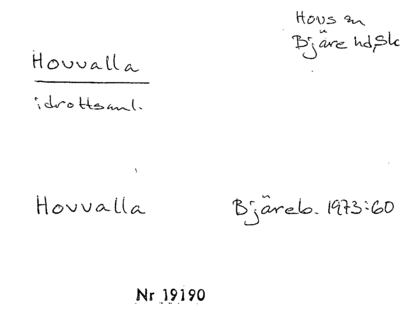 Hovs sn
Bjäre hd, Sk
Hovvalla
idrottsanl.
Hovvalla Bjäreb. 1973:60
Nr 19190